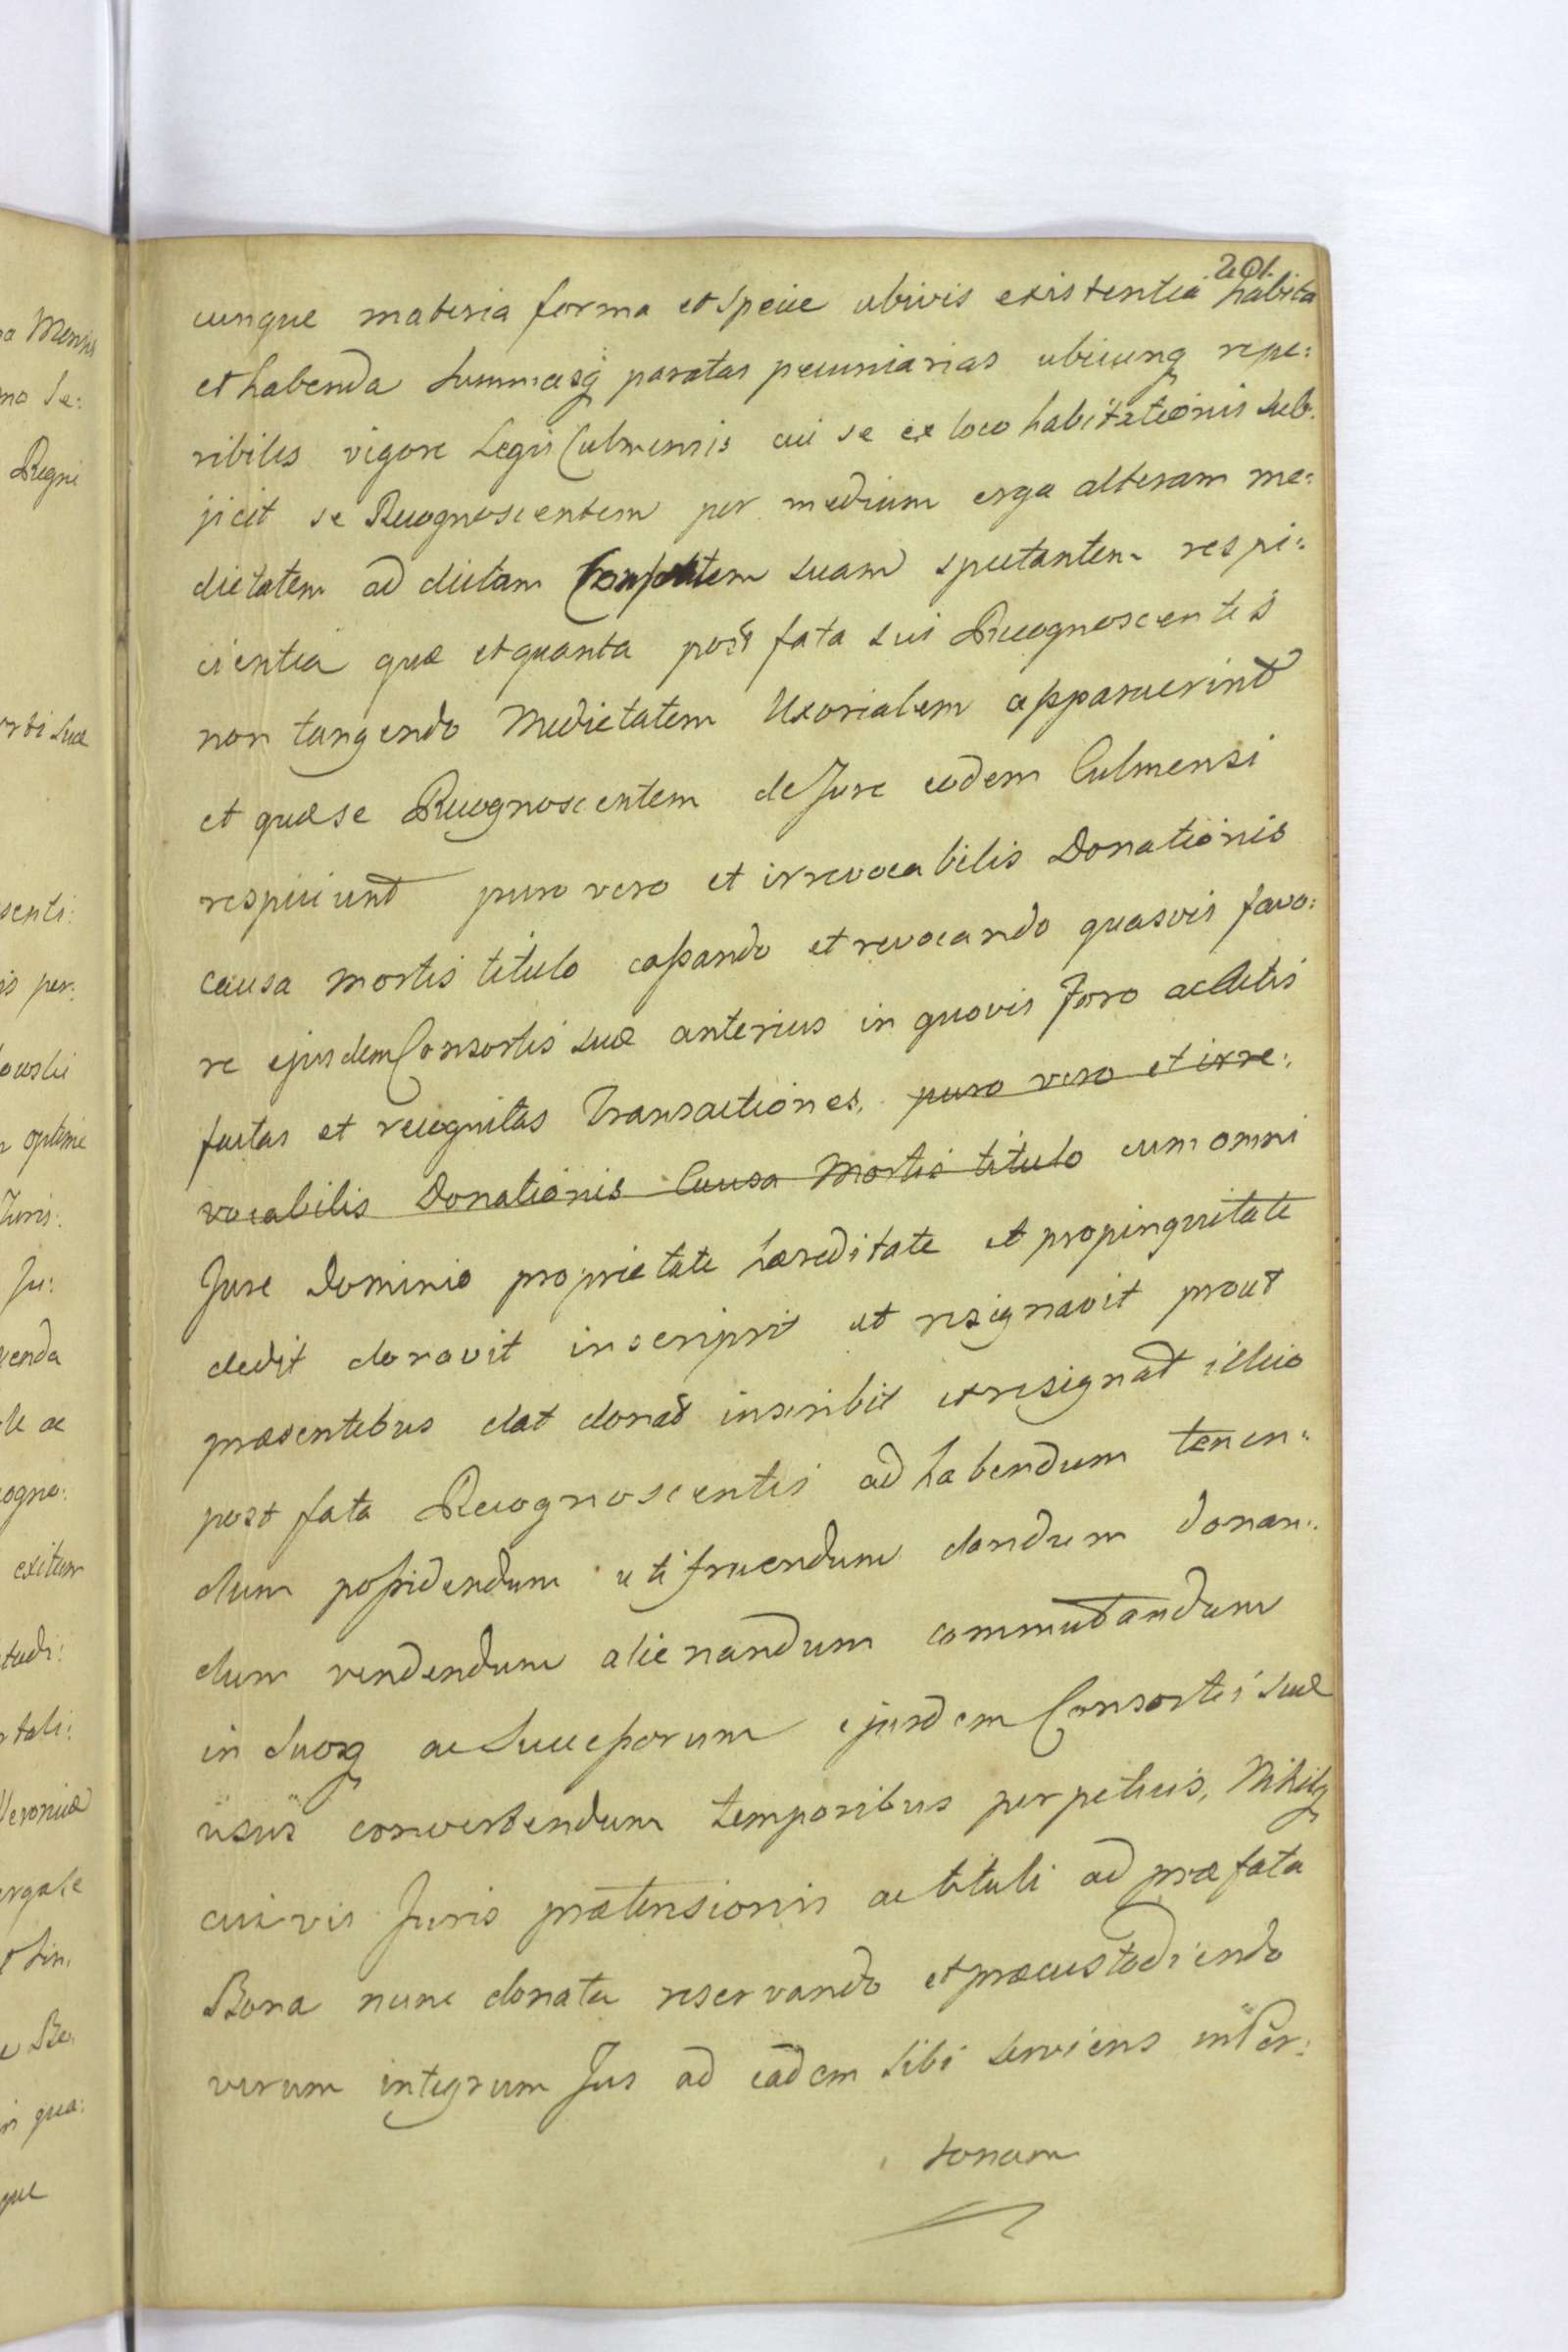 201.
cunque materia forma et specie ubivis existentia habita
et habenda Summasq paratas pecuniarias ubicunq repe:
ribiles vigore Legis Culmensis cui se ex loco habitationis sub:
jicit se Recognoscentem per medium erga alteram me:
dietatem ad dictam Consortem suam spectantem respi:
cientia quæ et quanta post fata sui Recognoscentis
non tangendo Medietatem Uxorialem apparuerint
et quæ se Recognoscentem de Jure eodem Culmensi
respiciunt puro vero et irrevocabilis Donationis
causa mortis titulo cassando et revocando quasvis favo:
re ejusdem Consortis suæ anterius in quovis Foro ac Actis
factas et recognitas Transactiones, puro vero et irre:
vocabilis Donationis Causa Mortis titulo cum omni
Jure Dominio proprietate hæreditate et propinquitate
dedit donavit inscripsit et resignavit prout
præsentibus dat donat inscribit et resignat idque
post fata Recognoscentis ad habendum tenen:
dum possidendum uti fruendum dandum donan:
dum vendendum alienandum commutandum
in Suosq ac Successorum ejusdem Consortis suæ
usus convertendum temporibus perpetuis, Nihilq
cuivis Juris prætensionis ac tituli ad præfata
Bona nunc donata reservando et præcustodiendo
verum integrum Jus ad eadem sibi serviens in Per:
sonam
a Mensis
mo Se:
Regni
rti suæ
senti:
is per:
owski
optime
Juris:
Ju:
enda
ogno:
exitum
tudi:
tali:
Veronicæ
Be
qua:
que